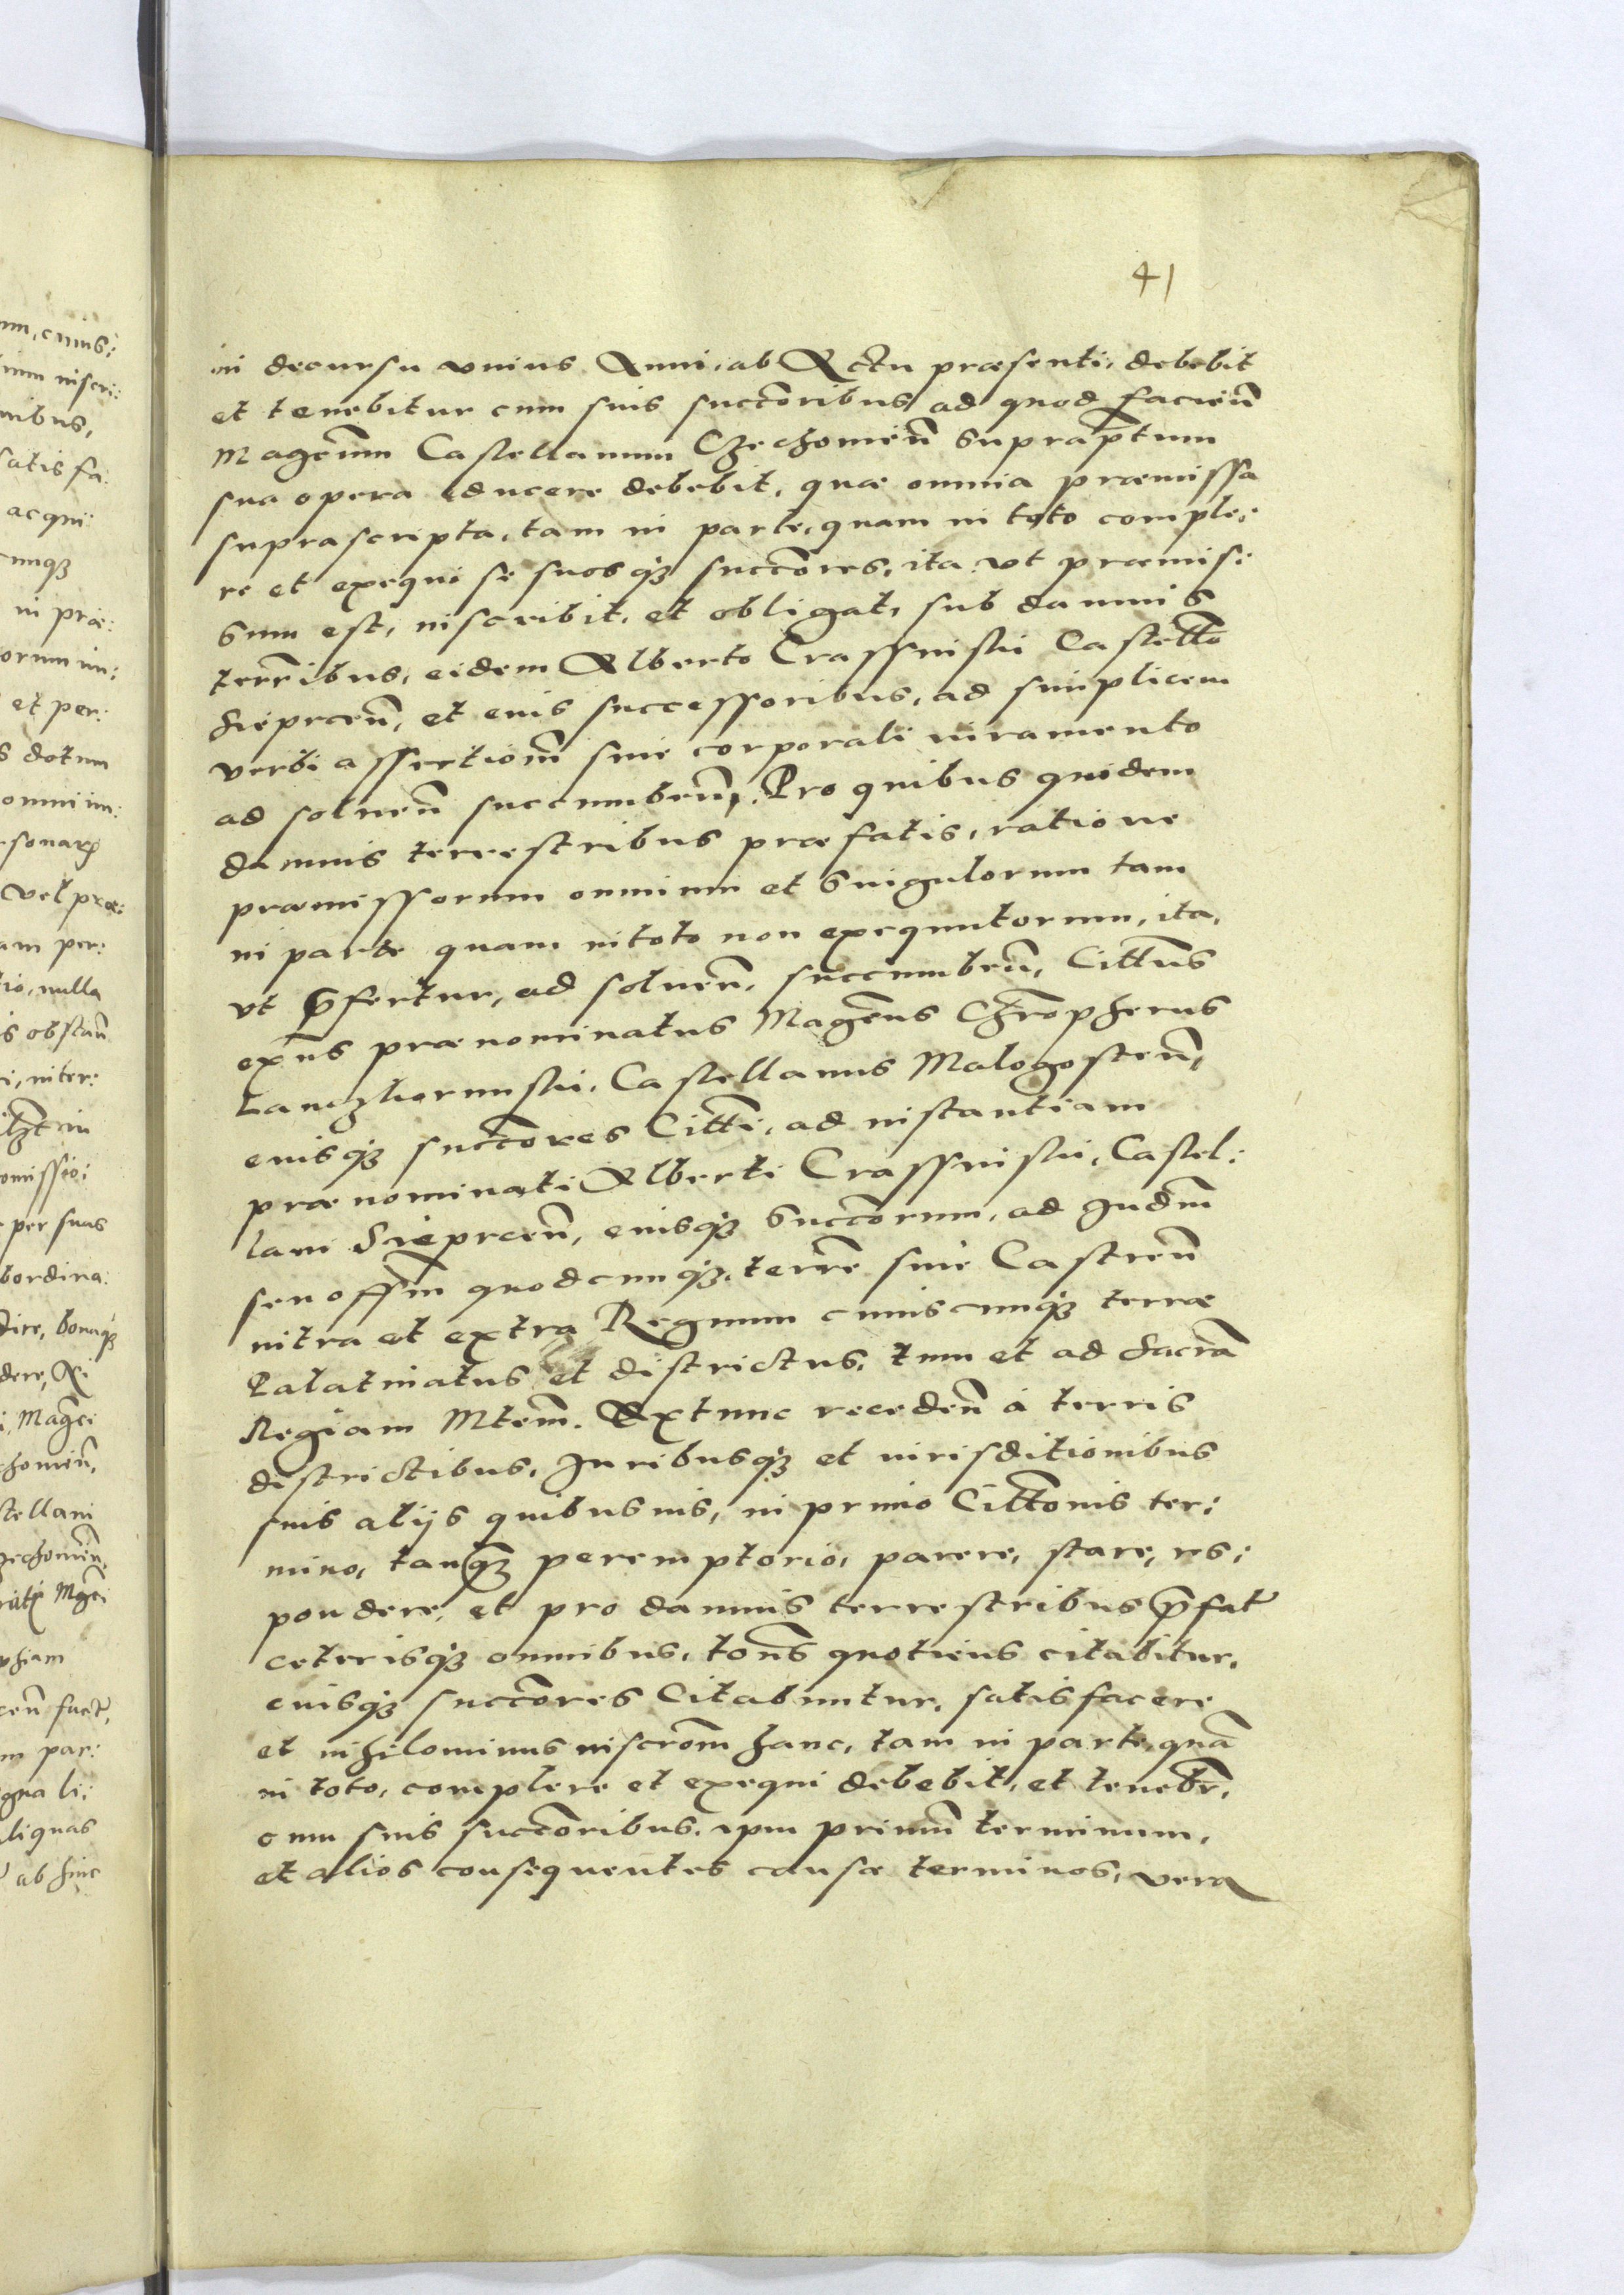 41
in decursu vnius Anni, ab Actu præsenti, debebit
et tenebitur cum suis succ̄oribus, ad quod facien̄
Magcūm Castellanum Czechowien̄ supraptum̄
sua opera aducere debebit, quæ omnia præmissa
suprascripta, tam in parte, quam in toto comple:
re et exequi se suosq3 succ̄ores, ita vt præmis:
sum est, inscribit, et obligat, sub damnis
terrīibus, eidem Alberto Crassinskii Castetto
Sieprcen̄, et eius successoribus, ad simplicem
verbi assertionē sine corporali iuramento
ad soluen̄ succumben̄. Pro quibus quidem
damnis terrestribus præfatis, ratione
præmissorum omnium et singulorum tam
in parte quam in toto non exequutorum, ita,
vt p̄fertur, ad soluen̄, succumben̄, Cittūs
exn̄s prænominatus Magcūs Chr̄opherus
Lanczkorunskii, Castellanus Malogosten̄,
eiusq3 succ̄ores Cittī, ad instantiam
prænominati Alberti Crassinskii, Castel:
lani Sieprcen̄, eiusq3 succ̄orum, ad Iudm̄
seu offm̄ quodcunq3, terrē siue Castren̄
intra et extra Regnum cuiuscunq3 terræ
Palatinatus et districtus, tum et ad Sacrā
Regiam Mtem̄. Extunc receden̄ à terris
districtibus, Iuribusq3 et iurisditionibus
suis alijs quibusuis, in primo Cittōnis ter:
mino, tanq3 peremptorio, parere, stare, res:
pondere, et pro damnis terrestribus p̄fat̄
ceterisq3 omnibus, tōns quotiens citabitur,
eiusq3 succ̄ores Citabuntur, satisfacere
et nihilominus inscrōm hanc, tam in parte, quā
in toto, complere et exequi debebit, et tenebr̄,
cum suis succ̄oribus, ipm primū terminum,
et alios consequentes causæ terminos, vera